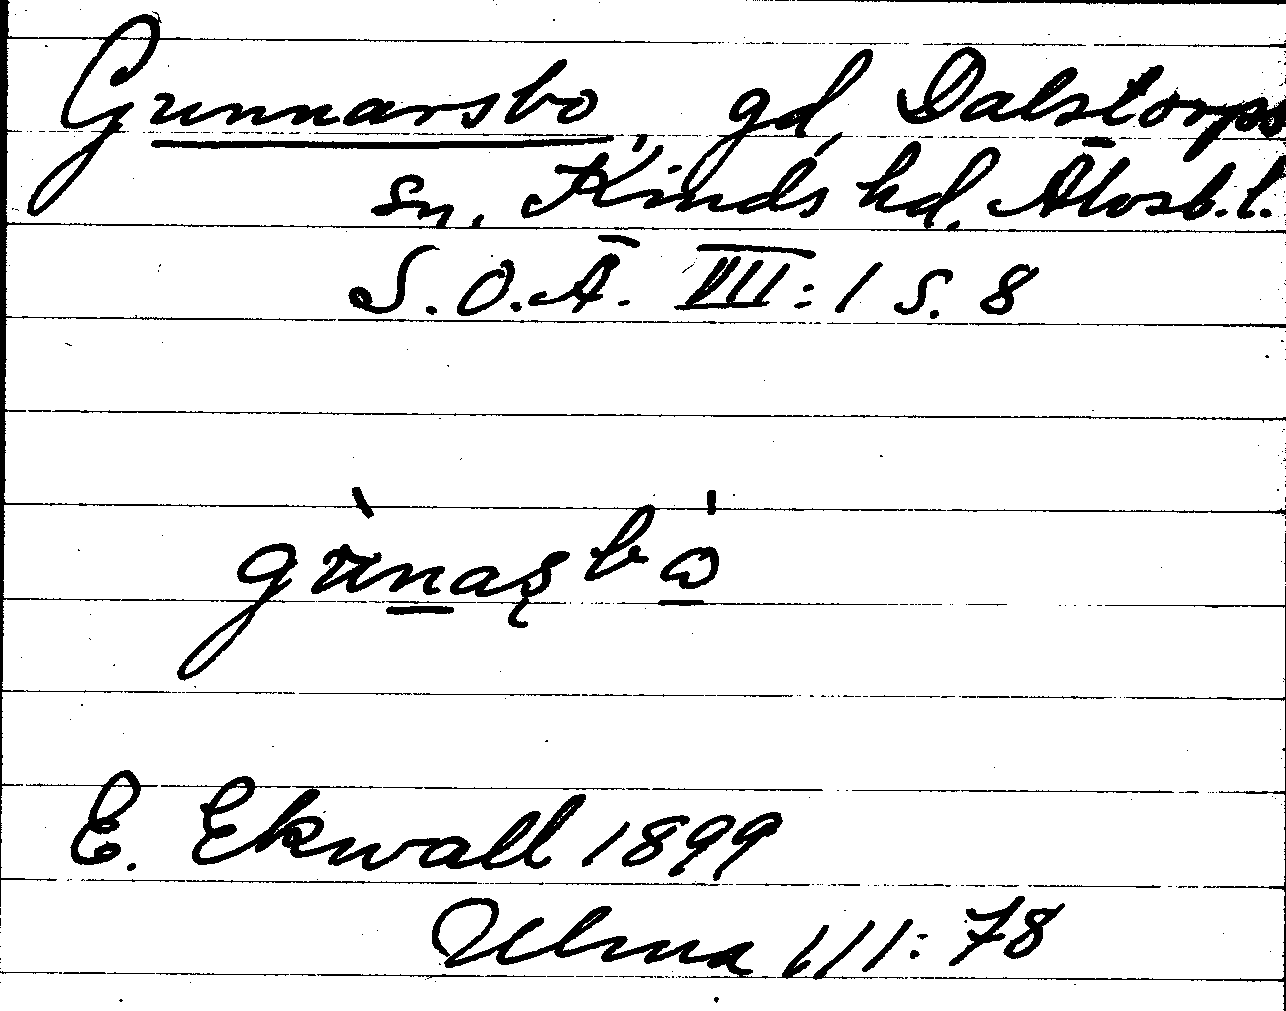 Gunnarsbo, gd, Dalstorps
sn, Kinds hd, Älvsb. l.
S. O. Ä. VIII: 1 s. 8
gùnasbo
E. Ekwall 1899
Ulma 111: 78